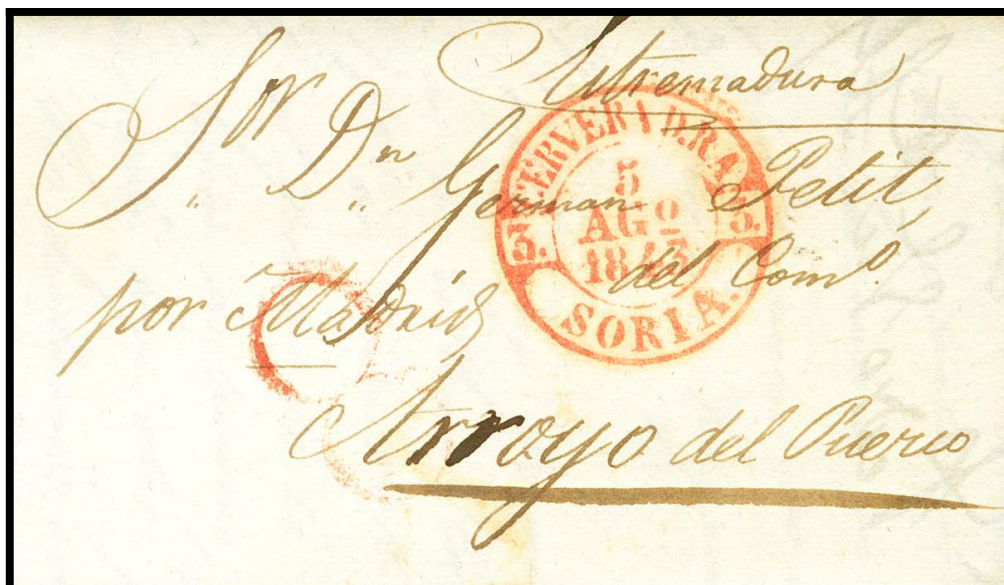 Extremadura
Sor. Dn. German Petit,
del Como.
por Madrid
Arroyo del Puerco
CERVERA D.R.A.
3. 3.
5
AGO
1845
SORIA.